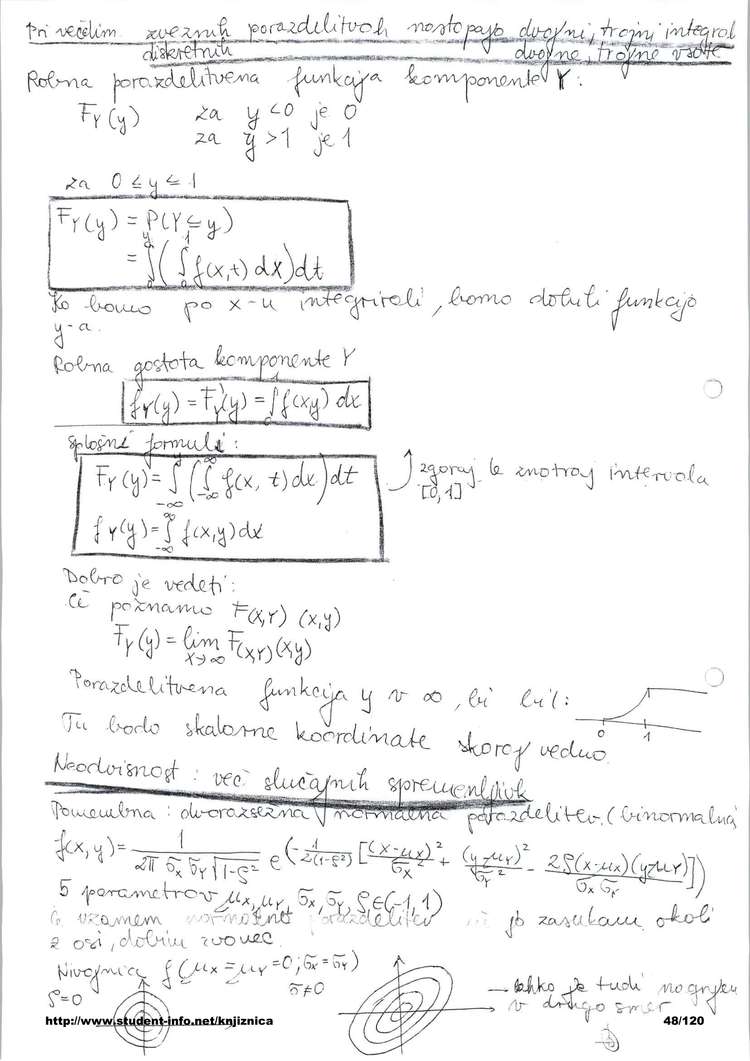 Pri večdim. zveznih porazdelitvah nastopajo dvojni, trojni integral
diskretnih dvojne, trojne vsote
Robna porazdelitvena funkcija komponente Y:
F_Y(y) za y<0 je 0
za y>1 je 1
za 0 ≤ y ≤ 1
F_Y(y) = P(Y ≤ y)
= ∫_0^y (∫_0^1 f(x,t) dx) dt
Ko bomo po x-u integrirali, bomo dobili funkcijo
y-a.
Robna gostota komponente Y
f_Y(y) = F_Y'(y) = ∫_0^1 f(x,y) dx
Splošni formuli:
F_Y(y) = ∫_{-∞}^y (∫_{-∞}^∞ f(x, t) dx) dt
zgoraj le znotraj intervala
[0,1]
f_Y(y) = ∫_{-∞}^∞ f(x,y) dx
Dobro je vedeti:
Če poznamo F_(X,Y) (x,y)
F_Y(y) = lim_{x→∞} F_(X,Y)(x,y)
Porazdelitvena funkcija y v ∞, bi bil:
0 1
Tu bodo skalarne koordinate skoraj vedno.
Neodvisnost: več slučajnih spremenljivk
Pomembna: dvorazsežna normalna porazdelitev (binormalna)
f(x,y) = 1/(2π σ_x σ_y √(1-ρ²)) e^(-1/(2(1-ρ²)) [(x-μ_x)²/σ_x² + (y-μ_y)²/σ_y² - 2ρ(x-μ_x)(y-μ_y)/(σ_x σ_y)])
5 parametrov μ_x, μ_y, σ_x, σ_y, ρ∈(-1,1)
Če vzamem normalno porazdelitev in jo zasukam okoli
z osi, dobim zvonec.
Nivojnice f (μ_x = μ_y = 0; σ_x = σ_y)
ρ=0
σ≠0
→ lahko je tudi nagnjen
v drugo smer
http://www.student-info.net/knjiznica 48/120